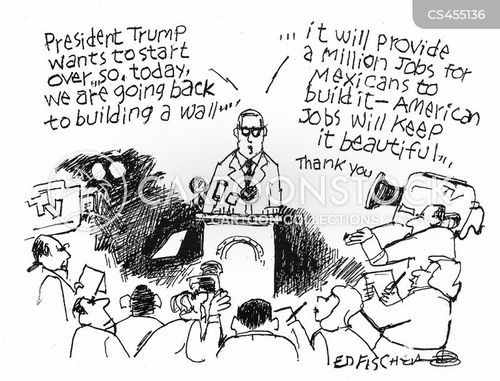 CS455136
President Trump
wants to start
over... so, today,
we are going back
to building a wall...
... it will provide
a million jobs for
Mexicans to
build it — American
jobs will keep
it beautiful...
Thank you
TV
CARTOONSTOCK
CARTOON COLLECTIONS
ED FISCHER